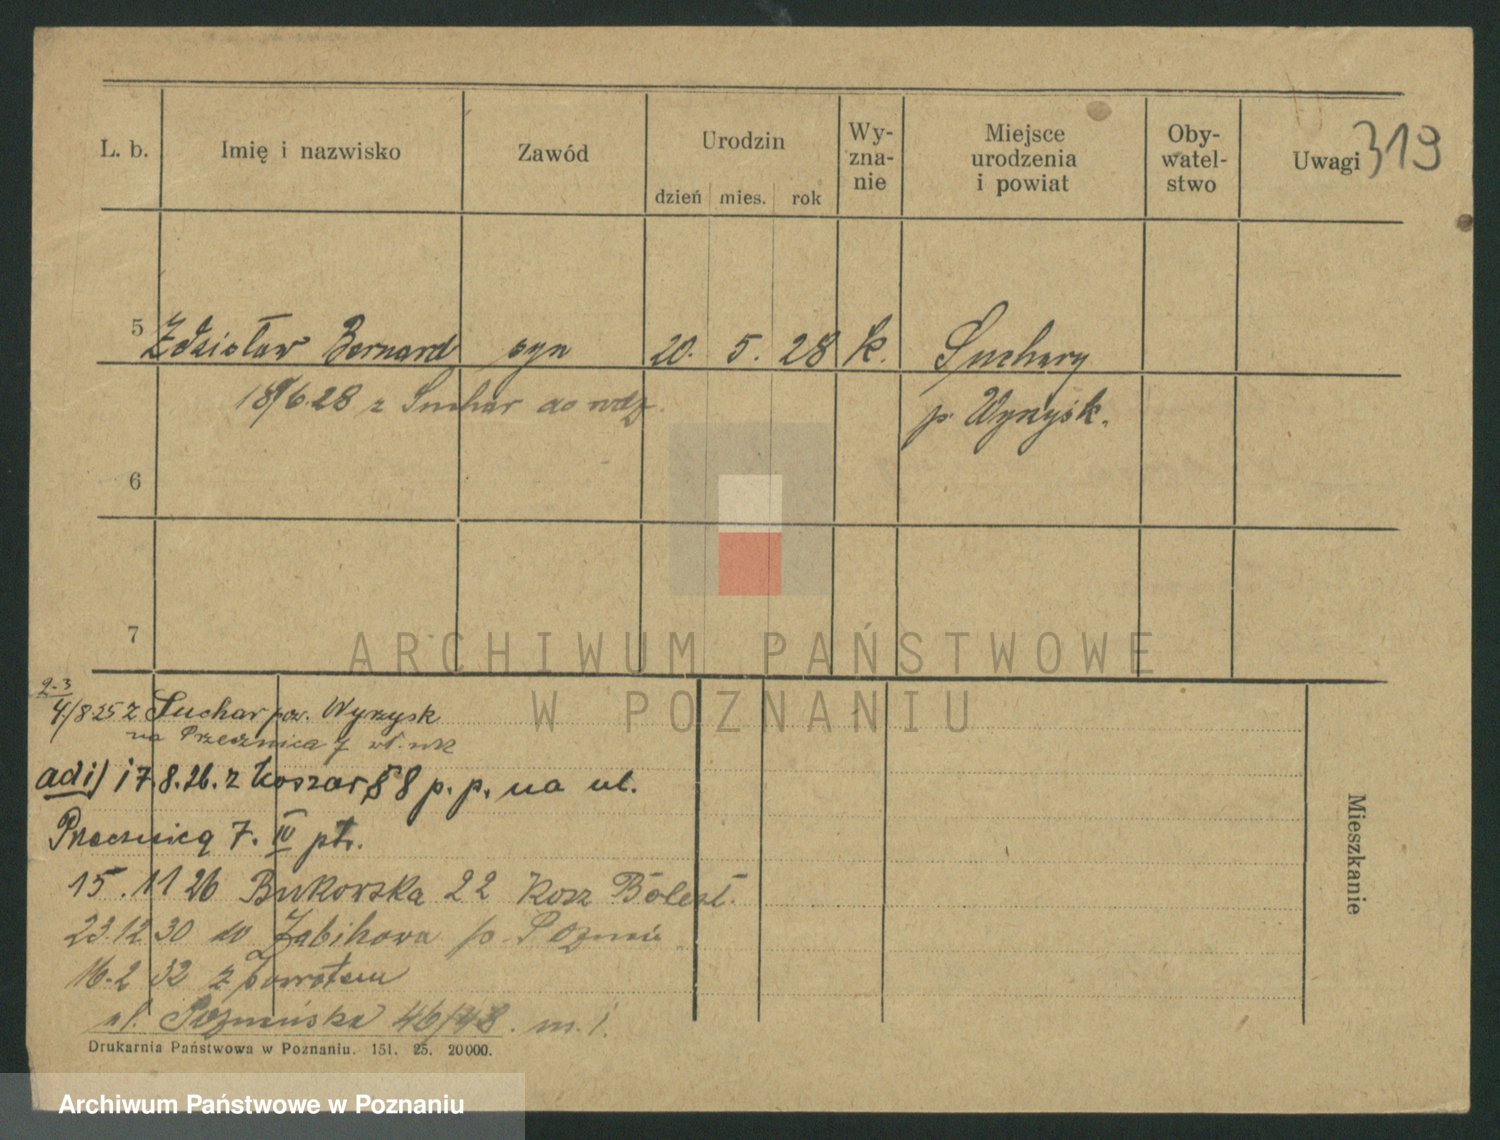 L. b. Imię i nazwisko Zawód Urodzin dzień mies. rok Wy-zna-nie Miejsce urodzenia i powiat Oby-watel-stwo Uwagi 319
5 Zdzisław Bernard syn 20. 5. 28 k. Suchary
p. Wyrzysk.
18/6.28 z Suchar do rodz.
6
7
2-3
4/8 25 z Suchar pow. Wyrzysk
na Przecznica 7
adi) 17.8.26. z koszar 58 p. p. na ul.
Przecznicą 7. IV ptr.
15.11 26 Bukowska 22 Kosz Bolest.
23.12 30 do Żabikowa p. Poznań
16.2 32 z powrotem
ul. Poznańska 46/48. m. 1.
Mieszkanie
Drukarnia Państwowa w Poznaniu. 151. 25. 20000.
ARCHIWUM PAŃSTWOWE
W POZNANIU
Archiwum Państwowe w Poznaniu